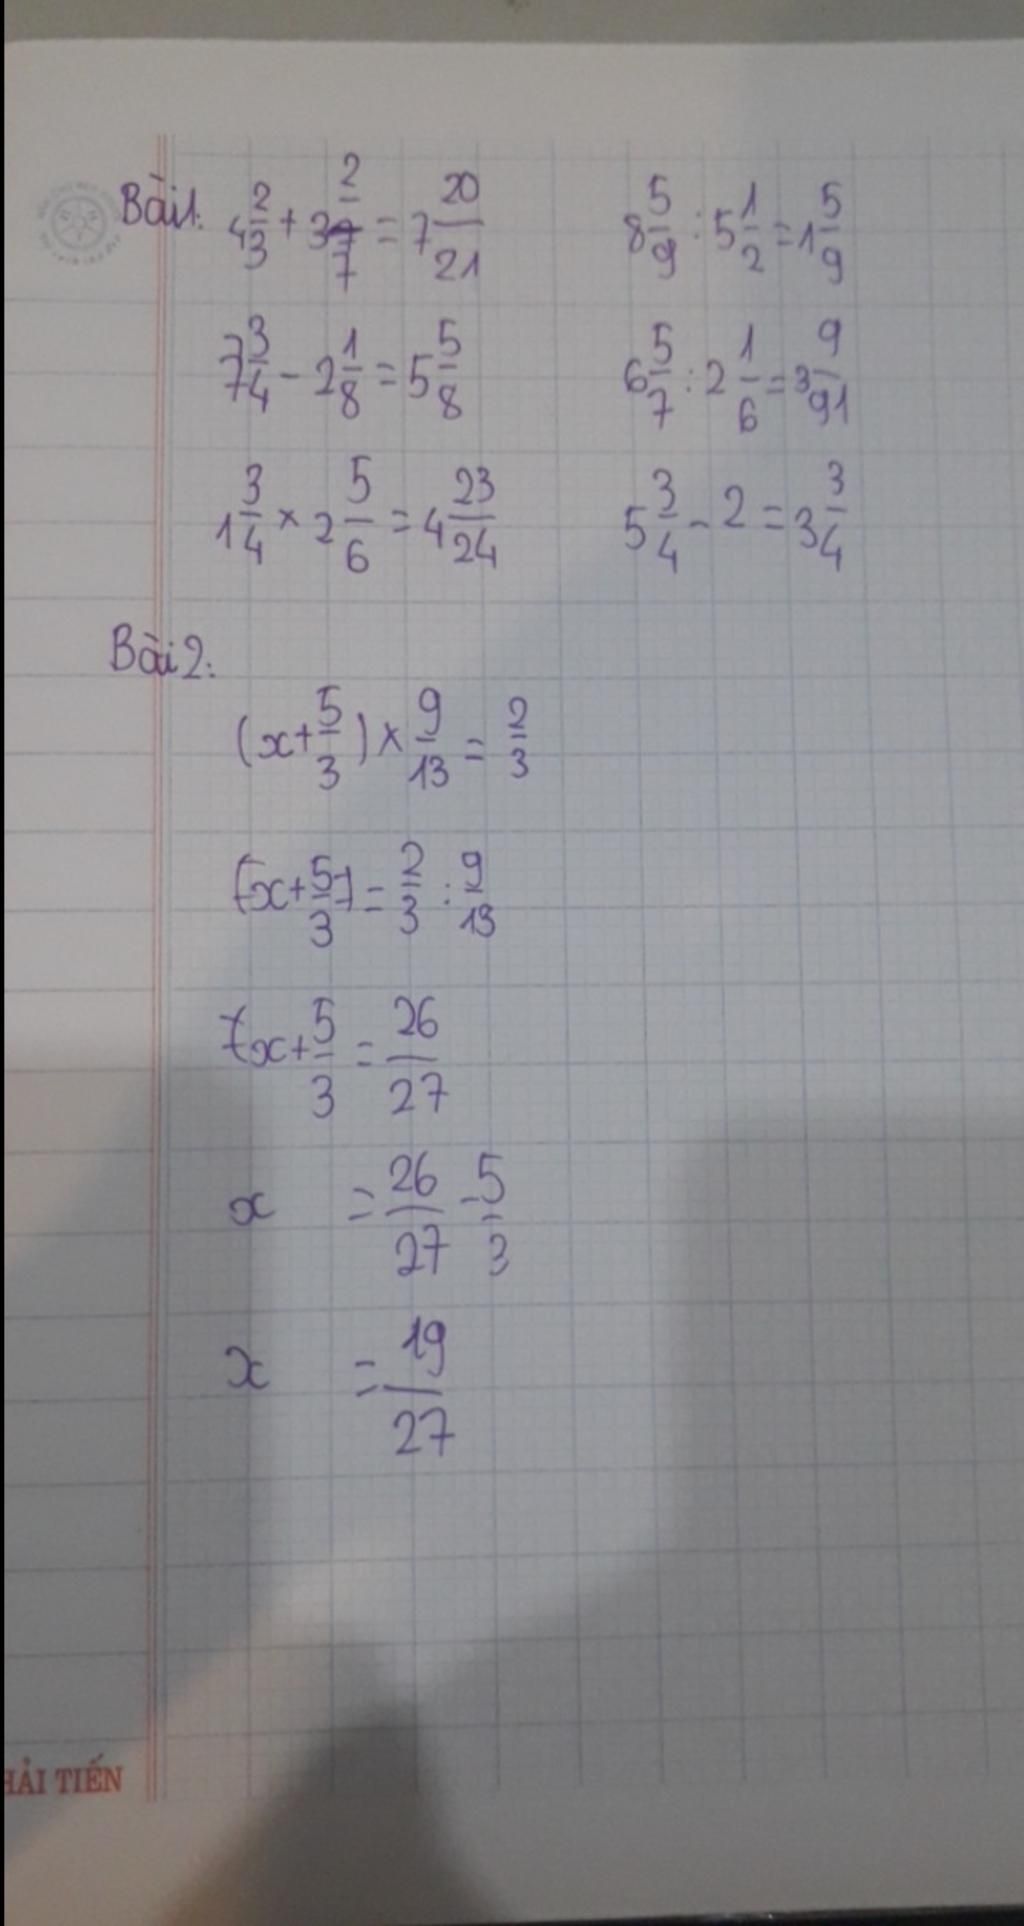 Bài 1: 4 2/3 + 3 2/7 = 7 20/21    8 5/9 : 5 1/2 = 1 5/9
7 3/4 - 2 1/8 = 5 5/8    6 5/7 : 2 1/6 = 3 9/91
1 3/4 × 2 5/6 = 4 23/24    5 3/4 - 2 = 3 3/4
Bài 2:
(x + 5/3) × 9/13 = 2/3
(x + 5/3) = 2/3 : 9/13
x + 5/3 = 26/27
x = 26/27 - 5/3
x = 19/27
HẢI TIẾN